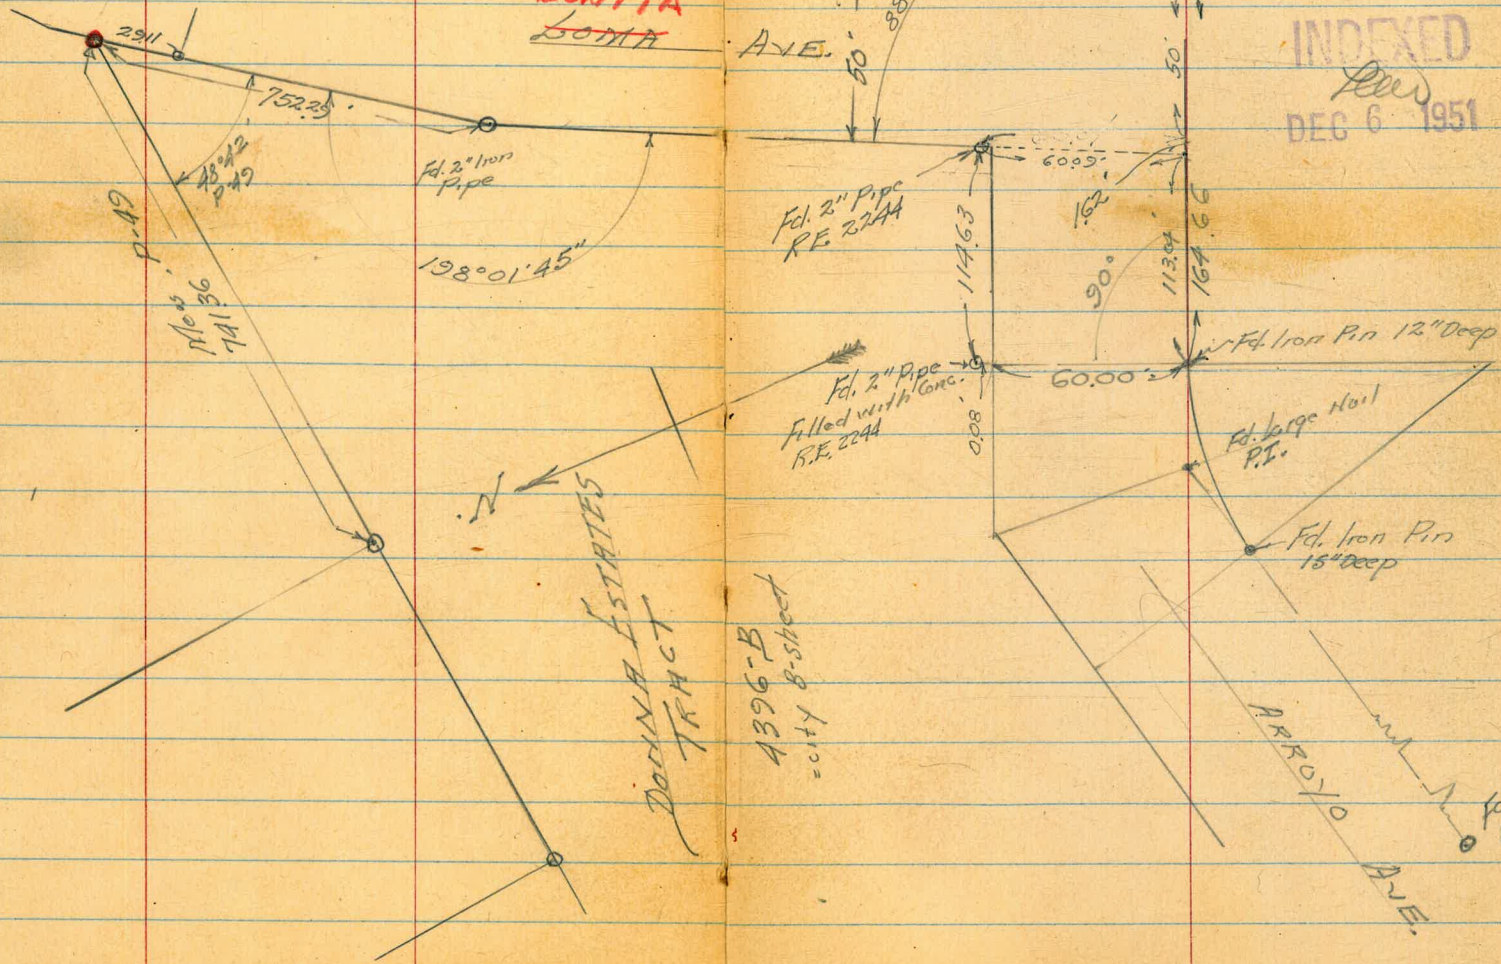 LOMA
AVE.
50'
88
50'
INDEXED
DEC 6 1951
29.11
752.29
48°42'
P-49
Fd. 2" Iron
Pipe
198°01'45"
Meas. P-49
741.36
Fd. 2" Pipe
R.E. 2244
60.09'
1.62'
114.63
113.04
164.66
90°
Fd. Iron Pin 12" Deep
60.00'
Fd. 2" Pipe
Filled with Conc.
R.E. 2244
0.08'
Fd. Large Nail
P.I.
Fd. Iron Pin
15" Deep
N
DONNA ESTATES
TRACT
4396-B
=City B-sheet
ARROYO AVE.